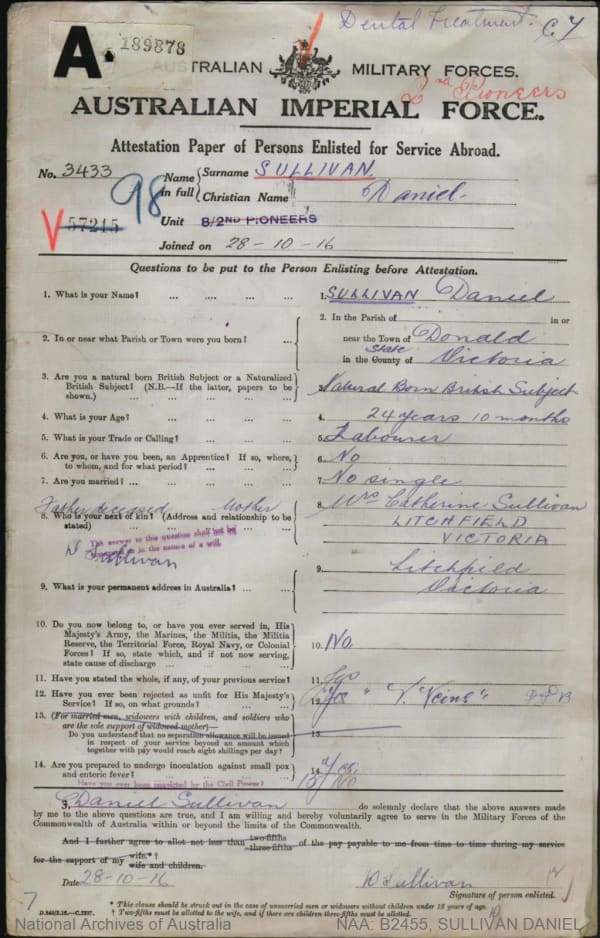 Dental Treatment. C7
A. 189878
AUSTRALIAN MILITARY FORCES.
2nd Pioneers
AUSTRALIAN IMPERIAL FORCE.
Attestation Paper of Persons Enlisted for Service Abroad.
No. 3433 Name in full { Surname SULLIVAN.
98 Christian Name Daniel.
V 57215 Unit 8/2ND PIONEERS
Joined on 28-10-16
Questions to be put to the Person Enlisting before Attestation.
1. What is your Name? ... .... ... ... 1. SULLIVAN Daniel
2. In the Parish of in or
2. In or near what Parish or Town were you born? ... near the Town of Donald
State
in the County of Victoria
3. Are you a natural born British Subject or a Naturalized
British Subject? (N.B.—If the latter, papers to be
shown.) ... ... ... ... 3. Natural Born British Subject
4. What is your Age? ... ... ... ... 4. 24 years 10 months
5. What is your Trade or Calling? ... ... ... 5. Labourer
6. Are you, or have you been, an Apprentice? If so, where,
to whom, and for what period? ... ... ... 6. No
7. Are you married? ... ... ... ... 7. No single
Father deceased Mother
8. Who is your next of kin? (Address and relationship to be
stated) ... ... ... ... 8. Mrs Catherine Sullivan
LITCHFIELD
VICTORIA
The answer to this question shall not be
in the nature of a will.
D Sullivan
9. What is your permanent address in Australia? ... ... 9. Litchfield
Victoria
10. Do you now belong to, or have you ever served in, His
Majesty's Army, the Marines, the Militia, the Militia
Reserve, the Territorial Force, Royal Navy, or Colonial
Forces? If so, state which, and if not now serving,
state cause of discharge ... ... ... 10. No.
11. Have you stated the whole, if any, of your previous service? 11. Yes
12. Have you ever been rejected as unfit for His Majesty's
Service? If so, on what grounds? ... ... 12. Yes "V. Veins"
13. (For married men, widowers with children, and soldiers who
are the sole support of widowed mother)—
Do you understand that no separation allowance will be issued
in respect of your service beyond an amount which
together with pay would reach eight shillings per day? 13.
14. Are you prepared to undergo inoculation against small pox
and enteric fever? ... ... ... 14. Yes.
Have you ever been convicted by the Civil Power? 15/ No
I, Daniel Sullivan do solemnly declare that the above answers made
by me to the above questions are true, and I am willing and hereby voluntarily agree to serve in the Military Forces of the
Commonwealth of Australia within or beyond the limits of the Commonwealth.
And I further agree to allot not less than two-fifths three-fifths of the pay payable to me from time to time during my service
for the support of † wife.* † wife and children.
Date 28-10-16 D Sullivan
Signature of person enlisted.
7 * This clause should be struck out in the case of unmarried men or widowers without children under 18 years of age.
† Two-fifths must be allotted to the wife, and if there are children three-fifths must be allotted.
National Archives of Australia NAA: B2455, SULLIVAN DANIEL